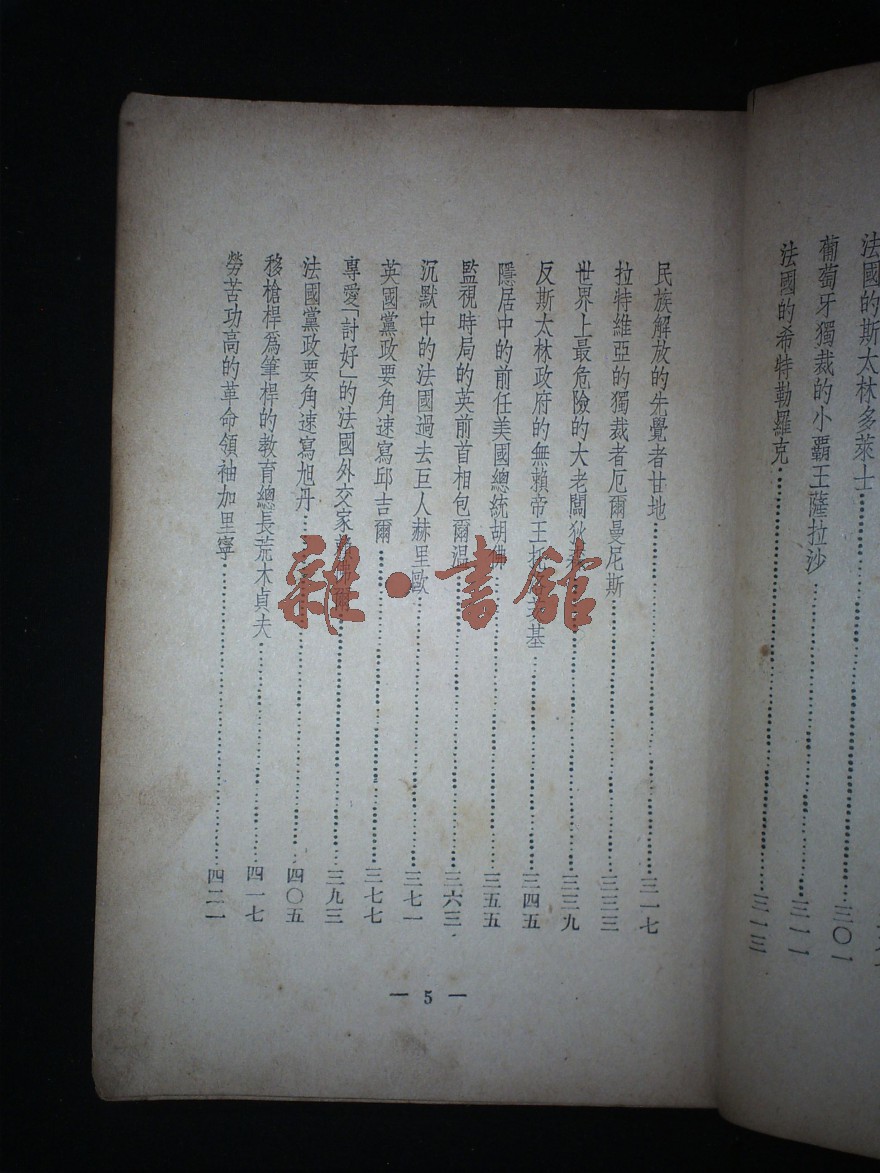 法國的斯太林多萊士
葡萄牙獨裁的小霸王薩拉沙……三〇一
三一一
法國的希特勒羅克……三一三
民族解放的先覺者甘地……三一七
拉特維亞的獨裁者厄爾曼尼斯……三三三
世界上最危險的大老闆狄……三三九
反斯太林政府的無賴帝王托洛斯基……三四五
隱居中的前任美國總統胡佛……三五五
監視時局的英前首相包爾温……三六三
沉默中的法國過去巨人赫里歐……三七一
英國黨政要角速寫邱吉爾……三七七
專愛「討好」的法國外交家……三九三
法國黨政要角速寫旭丹……四〇五
移槍桿爲筆桿的教育總長荒木貞夫……四一七
勞苦功高的革命領袖加里寧……四二一
— 5 —
雜·書館